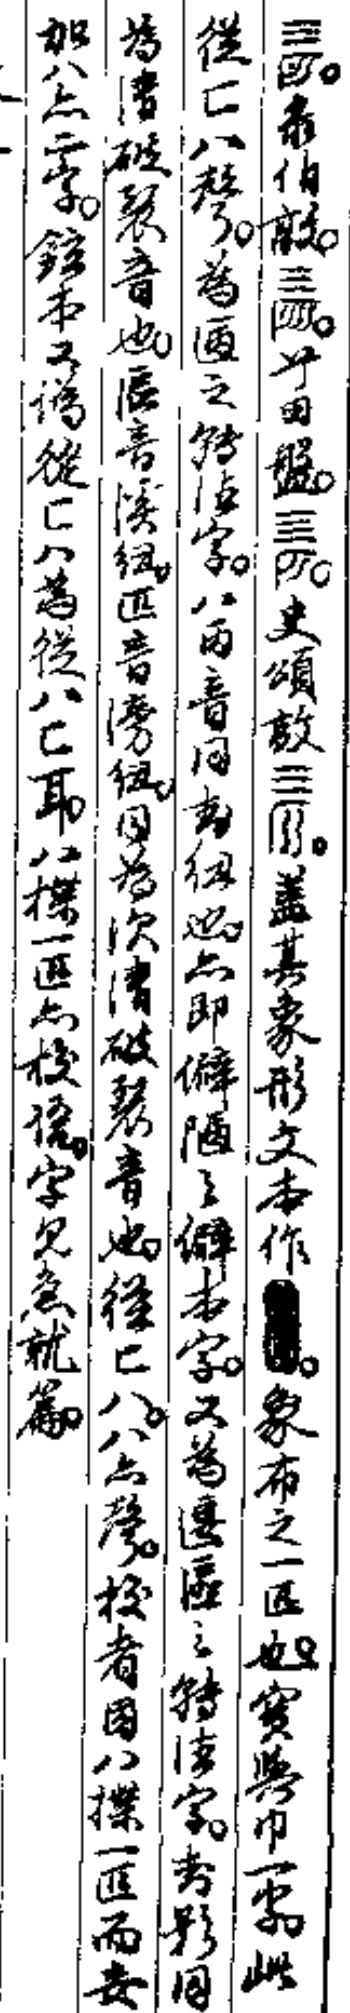 三。彔伯𣪘。三。兮田盤。三。史頌𣪘三。蓋其象形文本作。象布之一匹也。實與巾一字。此
從匸八聲。為匾之轉注字。八丙音同封紐也。亦即僻陋之僻本字。又為邊區之轉注字。封影同
為清破裂音也。區音溪紐。匹音滂紐。同為次清破裂音也。從匸八。八亦聲。校者因八揲一匹而妄
加八亦二字。鍇本又譌從匸八為從八匸耳。八揲一匹亦校語。字見急就篇。